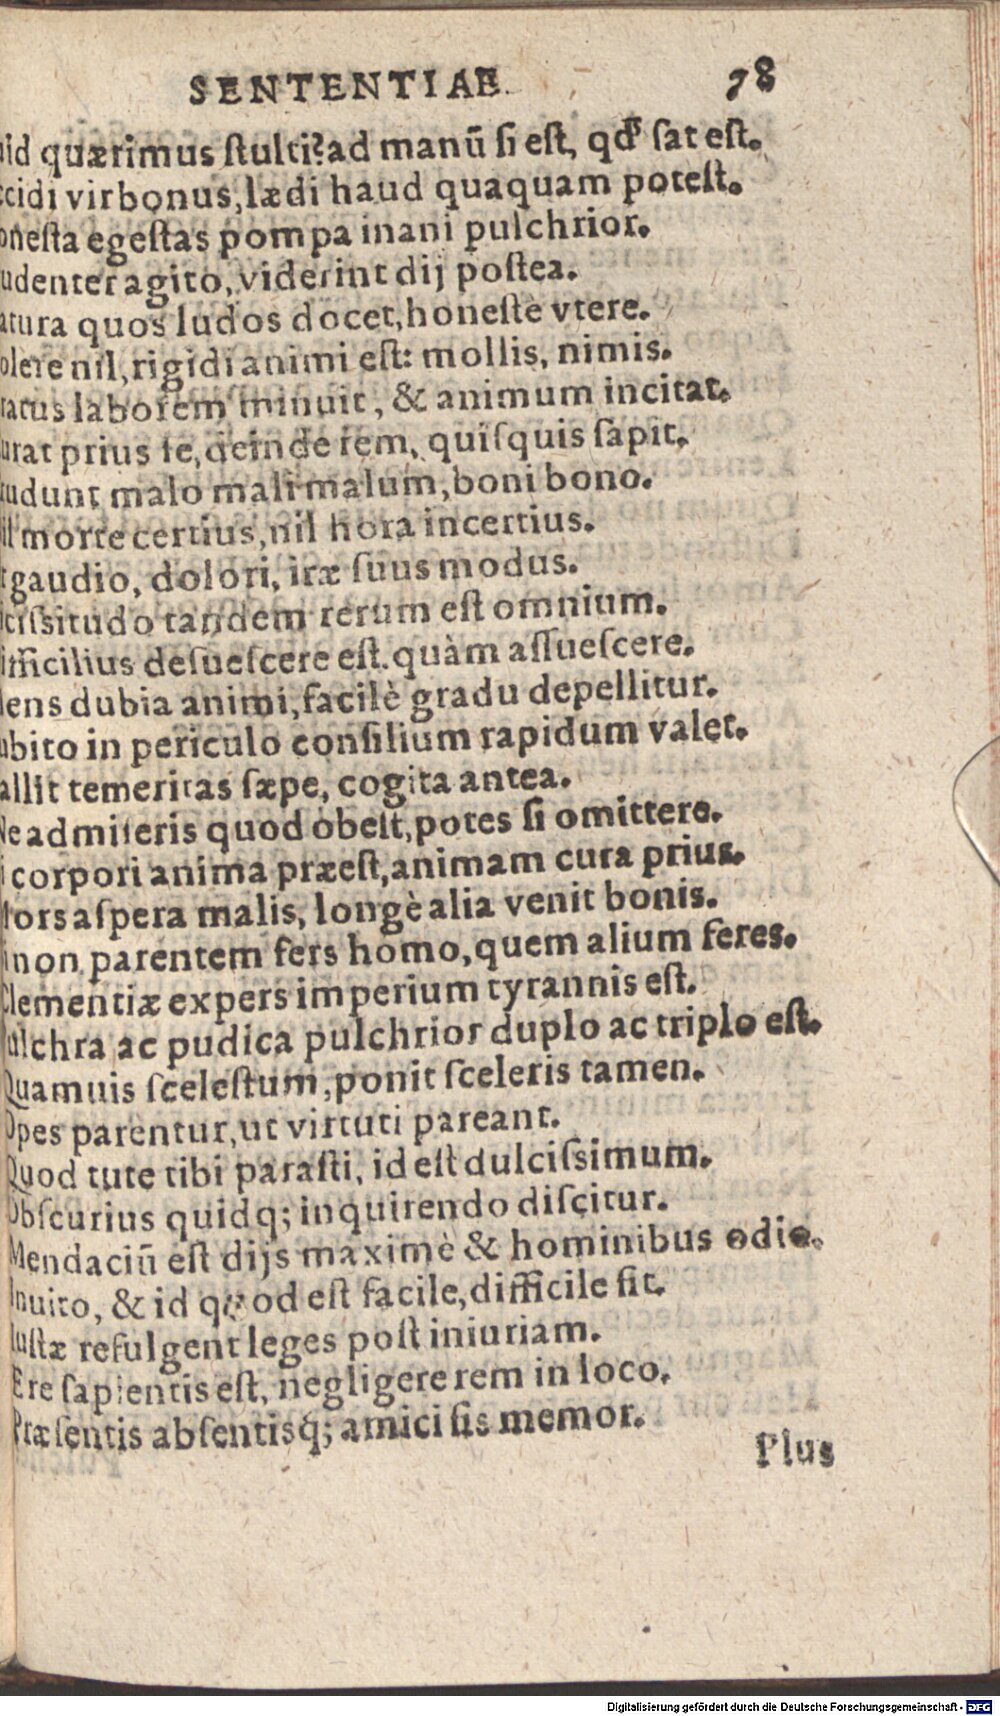 SENTENTIAE 78
uid quærimus ſtulti? ad manū ſi eſt, qđ ſat eſt.
ccidi vir bonus, lædi haud quaquam poteſt.
oneſta egeſtas pompa inani pulchrior.
udenter agito, viderint dij poſtea.
atura quos ludos docet, honeſtè vtere.
olere nil, rigidi animi eſt: mollis, nimis.
ratus laborem minuit, & animum incitat.
urat prius ſe, deinde rem, quiſquis ſapit.
udunt malo mali malum, boni bono.
il morte certius, nil hora incertius.
t gaudio, dolori, iræ ſuus modus.
iciſsitudo tandem rerum eſt omnium.
ifficilius deſueſcere eſt. quàm aſſueſcere.
Mens dubia animi, facilè gradu depellitur.
ubito in periculo conſilium rapidum valet.
allit temeritas ſæpe, cogita antea.
Ne admiſeris quod obeſt, potes ſi omittere.
i corpori anima præeſt, animam cura prius.
Mors aſpera malis, longè alia venit bonis.
i non parentem fers homo, quem alium feres.
Clementiæ expers imperium tyrannis eſt.
Pulchra ac pudica pulchrior duplo ac triplo eſt.
Quamuis ſceleſtum, ponit ſceleris tamen.
Opes parentur, ut virtuti pareant.
Quod tute tibi paraſti, id eſt dulciſsimum.
Obſcurius quidq; inquirendo diſcitur.
Mendaciū eſt dijs maximè & hominibus odio.
Inuito, & id quod eſt facile, difficile fit.
Iuſtæ refulgent leges poſt iniuriam.
Ere ſapientis eſt, negligere rem in loco.
Præſentis abſentisq́; amici ſis memor.
Plus
Digitalisierung gefördert durch die Deutsche Forschungsgemeinschaft - DFG